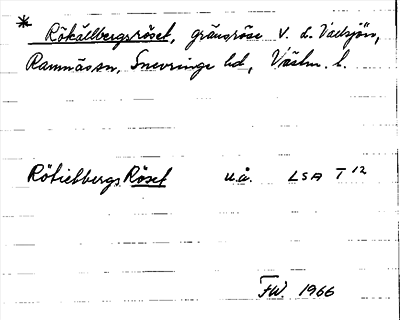 * Rökällbergsröset, gränsröse v. d. Vadsjön,
Ramnäs sn, Snevringe hd, Västm. l.
Rötietbergs Röset u.å. LSA T 12
FW 1966